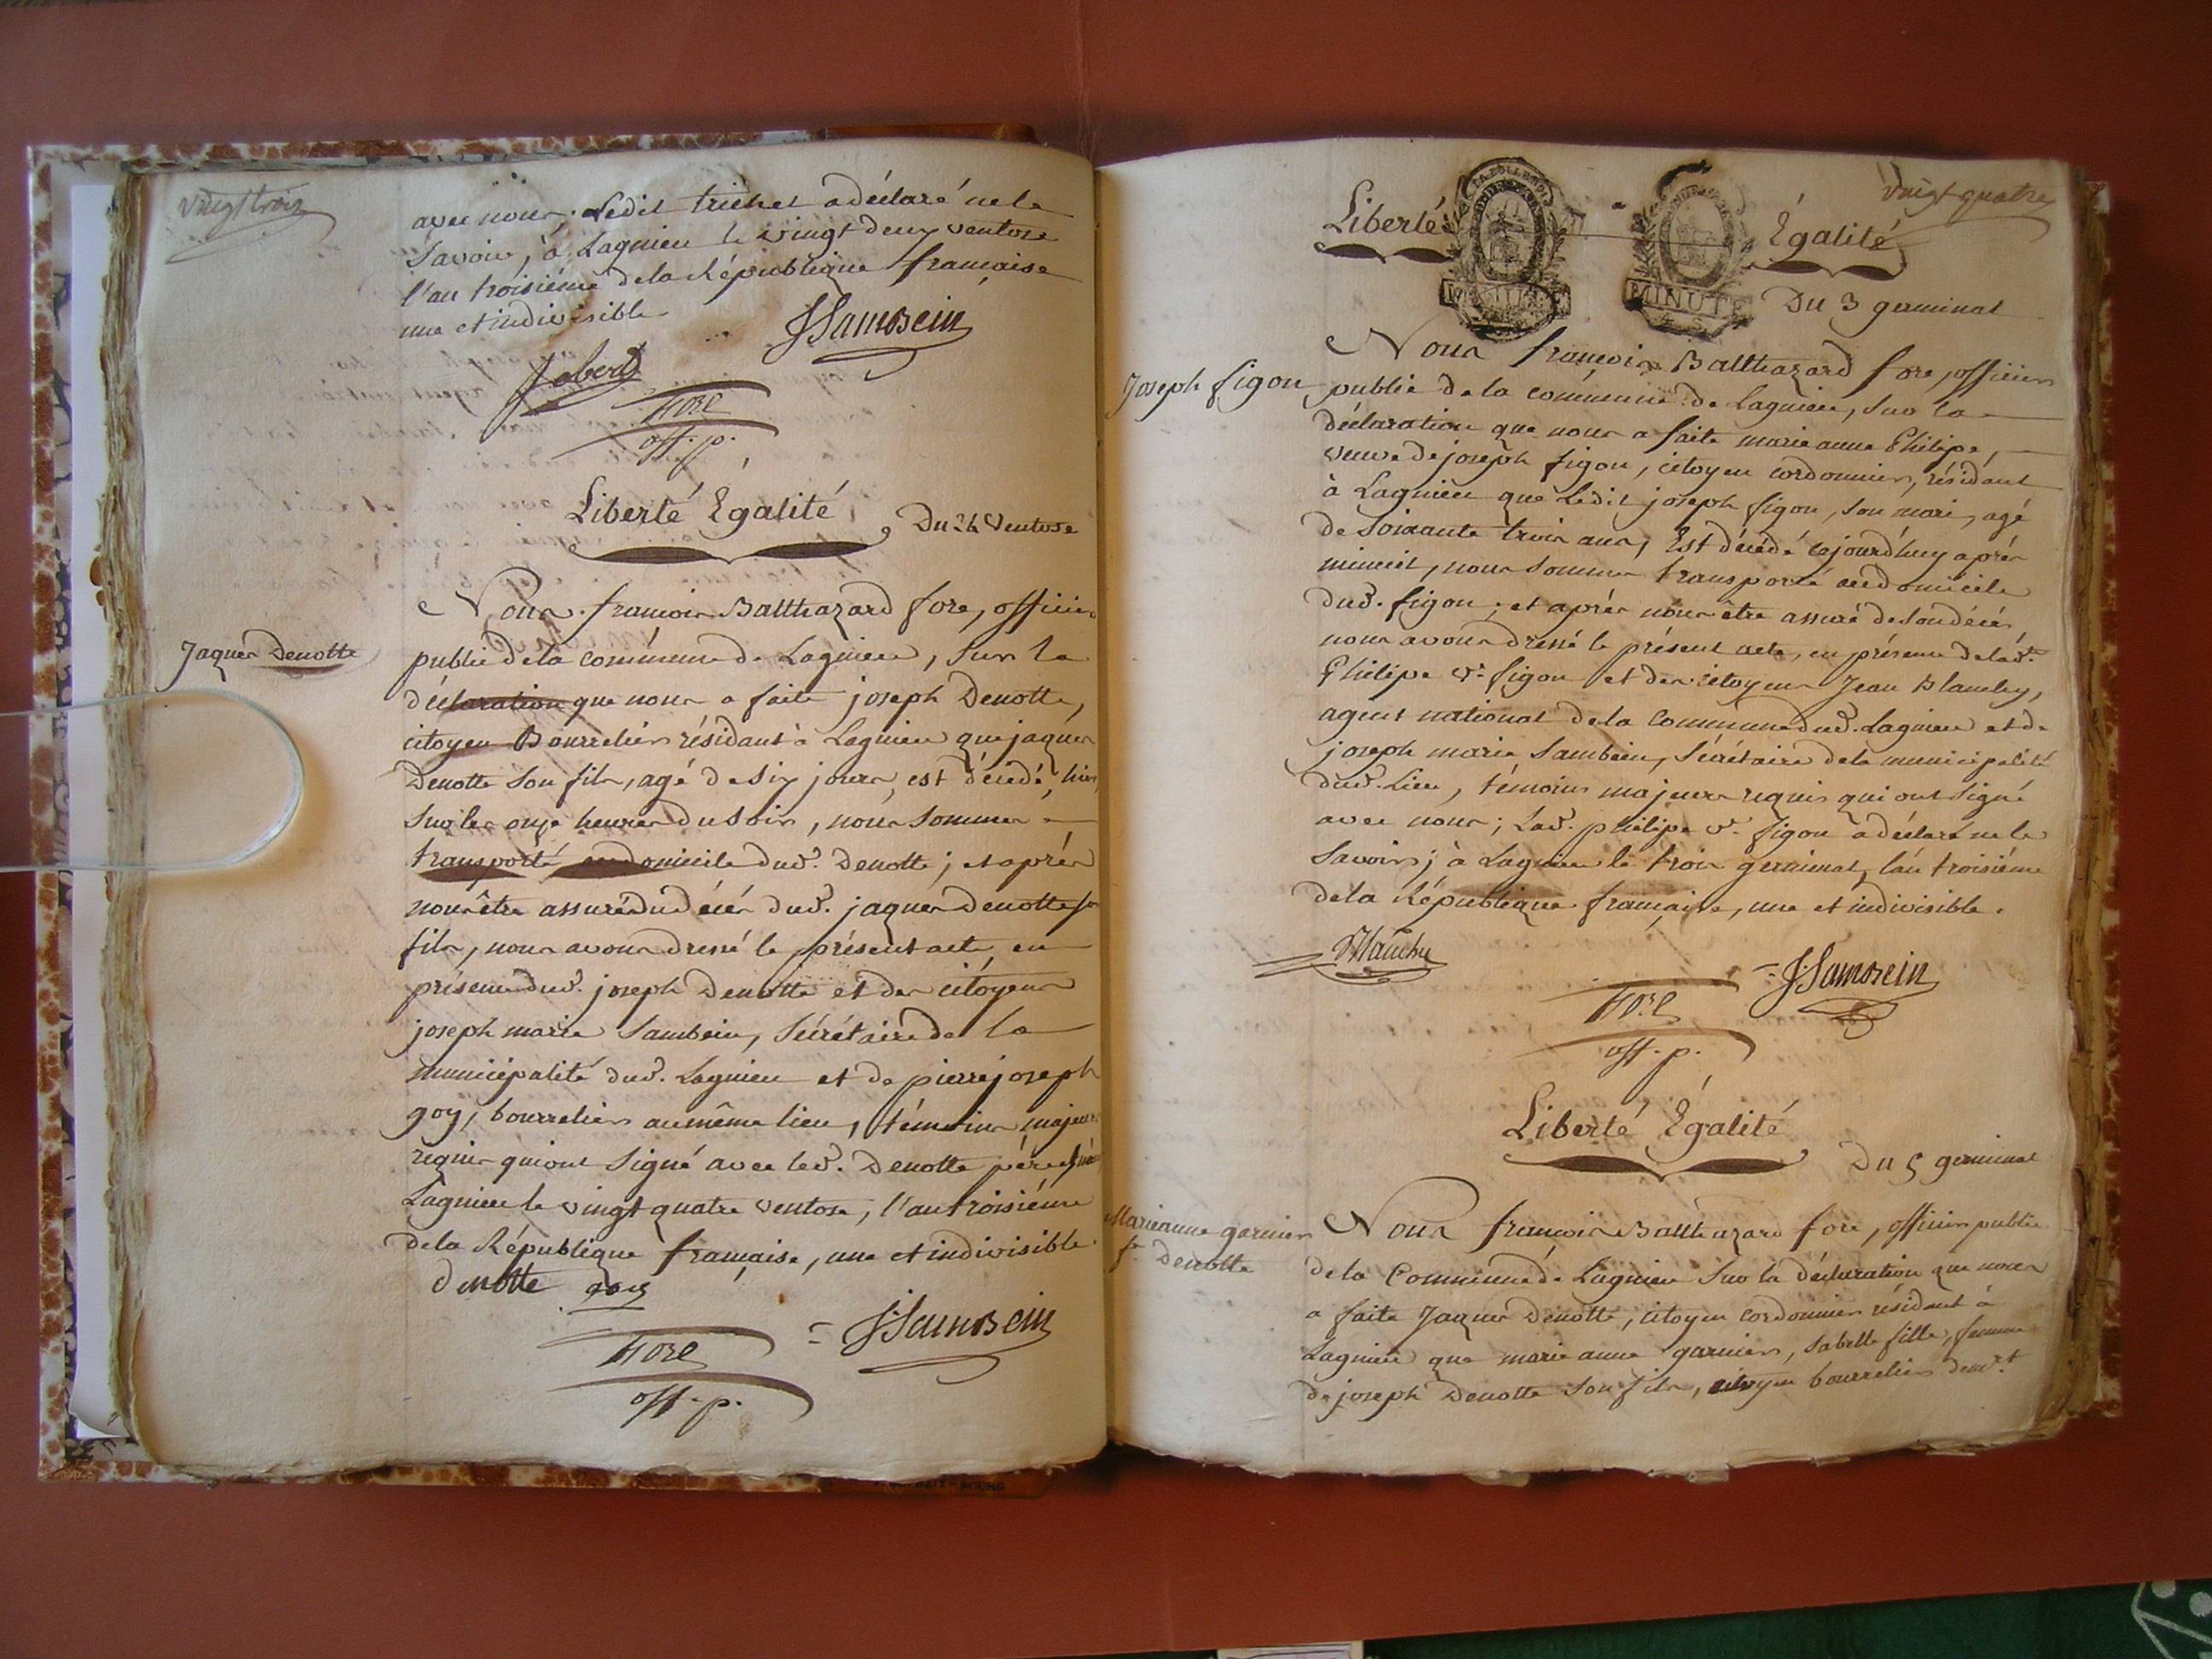 vingt trois
avec nous. Ledit trichet a déclaré ne le
savoir, à Lagnieu le vingt deux ventose
l'an troisiéme de la République francaise
une et indivisible
JSambein
Jobert
fore
off. p.
Liberté Egalité
Du 24 Ventose
Jaques Denotte
Nous francois Balthazard fore, officier
public de la commune de Lagnieu, sur la
déclaration que nous a faite joseph Denotte,
citoyen Bourrelier résidant à Lagnieu que jaques
Denotte son fils, agé de six jours, est décédé hier
sur les onze heures du soir, nous sommes
transporté au domicile dud. Denotte; et après
nous être assuré du décés dud. jaques Denotte son
fils, nous avons dressé le présent acte, en
présence dud. joseph Denotte et des citoyens
joseph marie Sambein, Sécrétaire de la
municipalité dud. Lagnieu et de pierre joseph
goy, bourrelier au même lieu, témoins majeurs
requis qui ont signé avec led. Denotte père, à
Lagnieu le vingt quatre ventose, l'an troisiéme
de la République francaise, une et indivisible.
denotte goy
JSambein
fore
off. p.
vingt quatre
Liberté Égalité
MINUTE
Du 3 germinal
Joseph figon
Nous francois Balthazard fore, officier
public de la commune de Lagnieu, sur la
déclaration que nous a faite marie anne Philipe,
veuve de joseph figon, citoyen cordonnier, résidant
à Lagnieu que Ledit joseph figon, son mari, agé
de soixante trois ans, Est décédé cejourd'huy après
minuit, nous sommes transporté au domicile
dud. figon; et après nous être assuré de son décés
nous avons dressé le présent acte, en présence de lad.
Philipe ve. figon et des citoyens Jean Blanchy,
agent national de la commune dud. Lagnieu et de
joseph marie Sambein, Sécrétaire de la municipalité
dud. Lieu, témoins majeurs requis qui ont signé
avec nous; Lad. philipe ve. figon a déclaré ne le
savoir; à Lagnieu le trois germinal, l'an troisiéme
de la République francaise, une et indivisible.
JSambein
fore
off. p.
Liberté Egalité
Du 5 germinal
Marieanne garnier
fe. Denotte
Nous francois Balthazard fore, officier public
de la Commune de Lagnieu sur la déclaration que nous
a faite Jaques Denotte, citoyen cordonnier résidant à
Lagnieu que marie anne garnier, sa belle fille, femme
de joseph Denotte son fils, citoyen bourrelier demt.